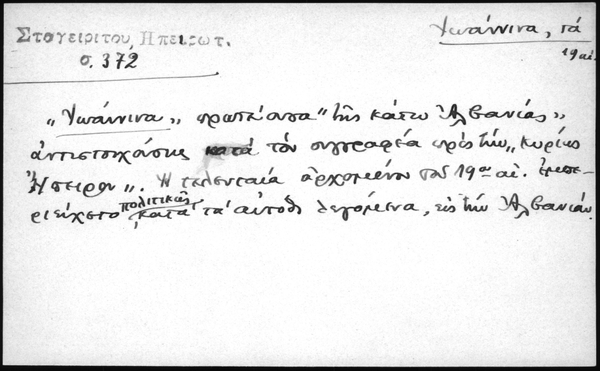 Σταγειρίτου, Ηπειρωτ.
σ. 372
Ἰωάννινα, τά
19 αἰ.
"Ἰωάννινα„ πρωτεύουσα "τῆς κάτω Ἀλβανίας„
ἀντιστοιχούσης κατά τόν συγγραφέα πρὸς τήν „κυρίως
Ἤπειρον„. Ἡ τελευταία ἀρχομένου τοῦ 19ου αἰ. ἐμπε-
ριείχετο πολιτικῶς κατά τά αὐτόθι λεγόμενα, εἰς τήν Ἀλβανίαν.